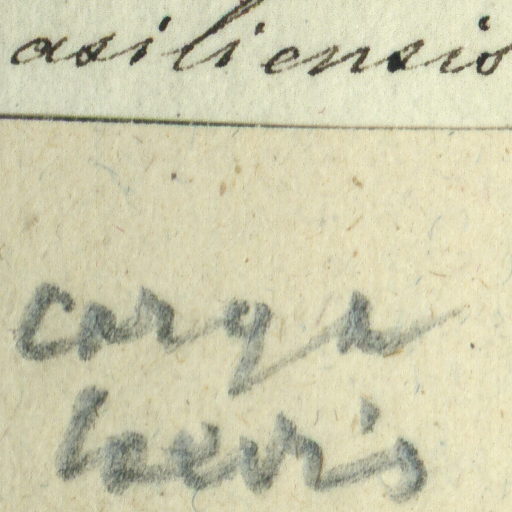 asiliensis
carya
laevis